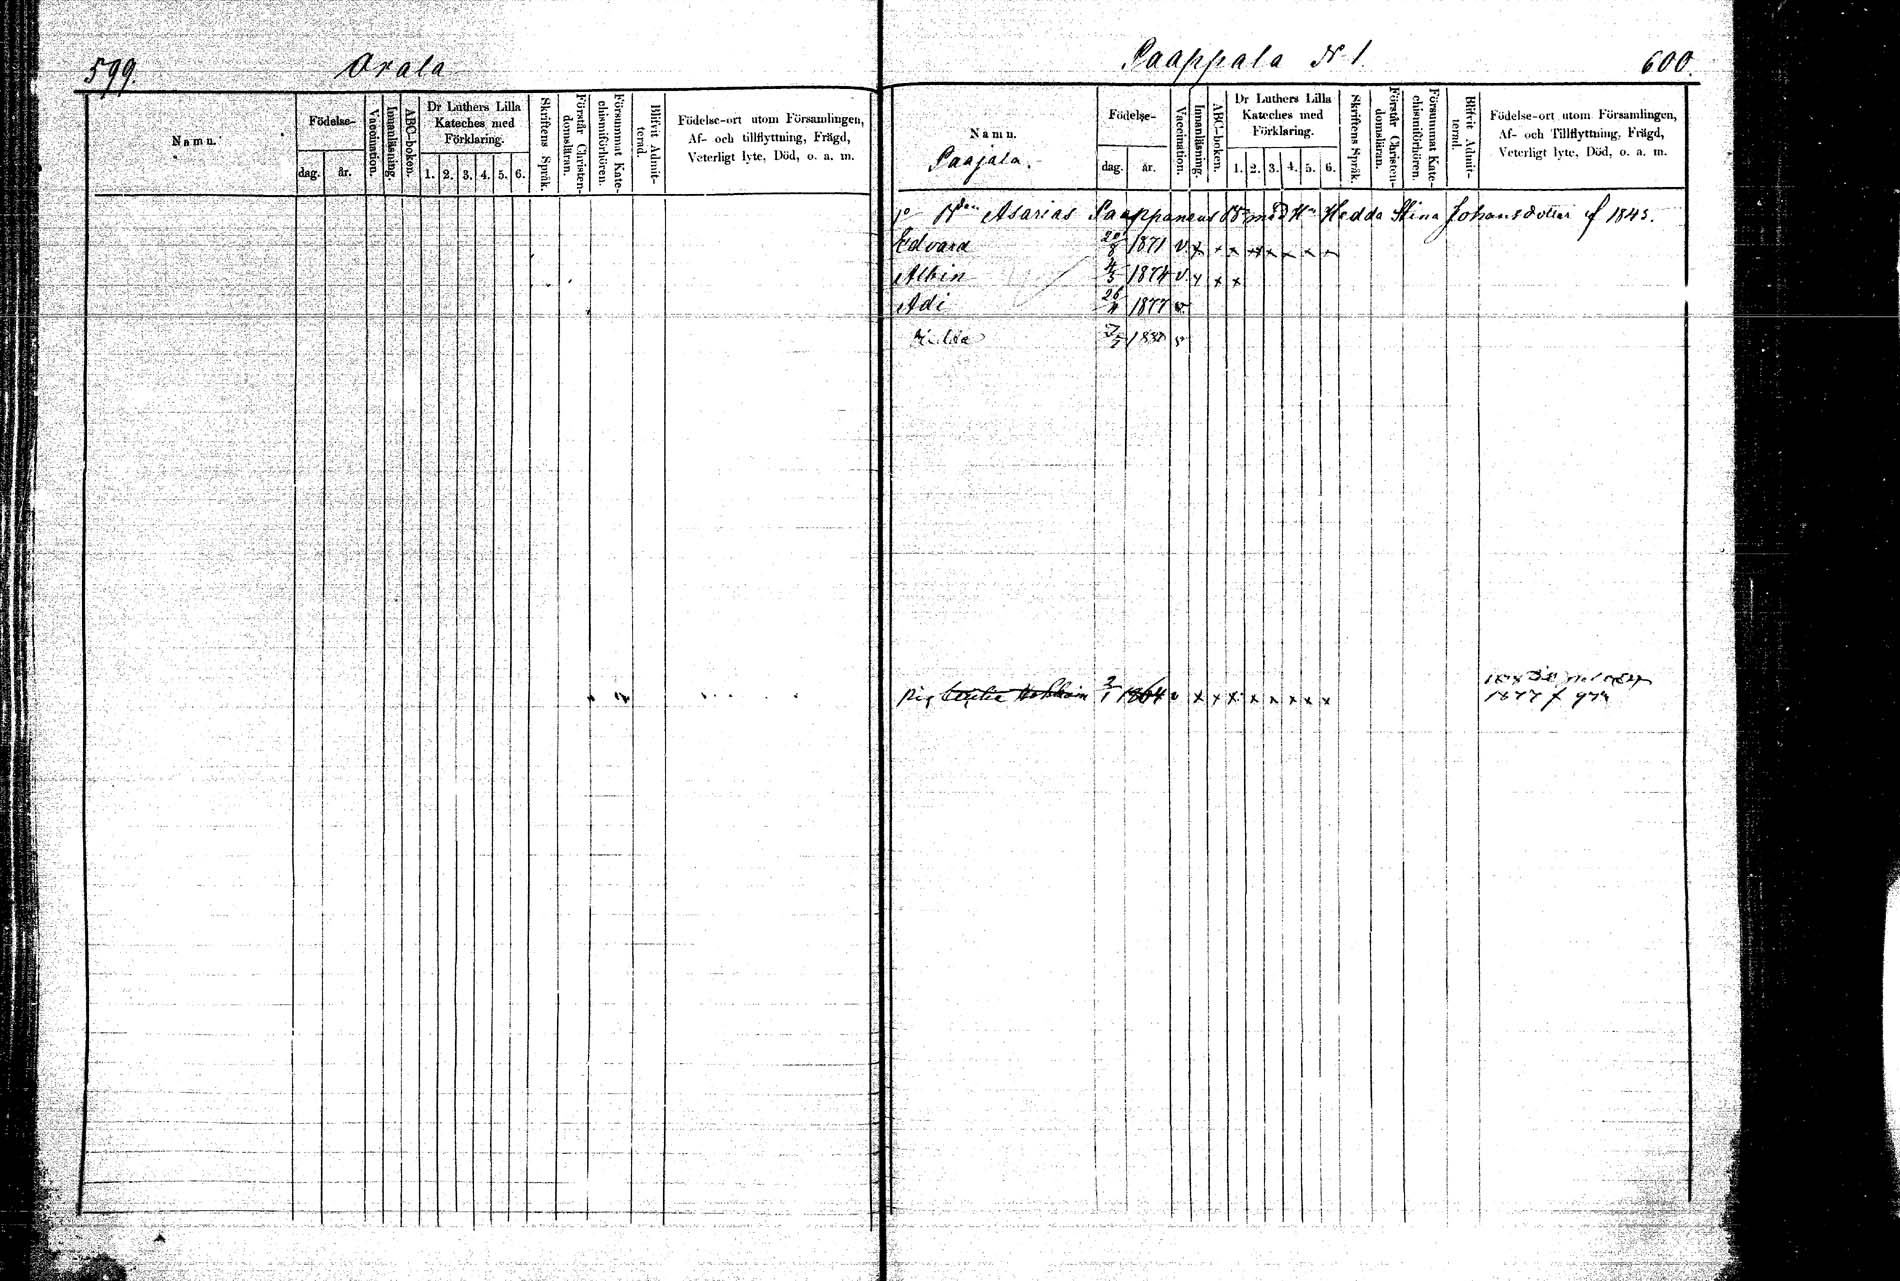 599.
Orala
Namn.
Födelse-
dag.
år.
Vaccination.
Innanläsning.
ABC-boken.
Dr Luthers Lilla
Kateches med
Förklaring.
1. 2. 3. 4. 5. 6.
Skriftens Språk.
Förstår Christen-
domsläran.
Försummat Kate-
chismiförhören.
Blifvit Admit-
terad.
Födelse-ort utom Församlingen,
Af- och tillflyttning, Frägd,
Veterligt lyte, Död, o. a. m.
Paappala N 1.
600.
Namn.
Paajala.
Födelse-
dag.
år.
Vaccination.
Innanläsning.
ABC-boken.
Dr Luthers Lilla
Kateches med
Förklaring.
1. 2. 3. 4. 5. 6.
Skriftens Språk.
Förstår Christen-
domsläran.
Försummat Kate-
chismiförhören.
Blifvit Admit-
terad.
Födelse-ort utom Församlingen,
Af- och Tillflyttning, Frägd,
Veterligt lyte, Död, o. a. m.
Asarias Paappanens med Hedda Stina Johansdotter f 1843.
Edvard 20/8 1871 v x x x x x x x x
Albin 4/3 1874 v x x x
Adi 26/4 1877 v
v
Pig 2/1 1864 v x x x x x x x x
1877